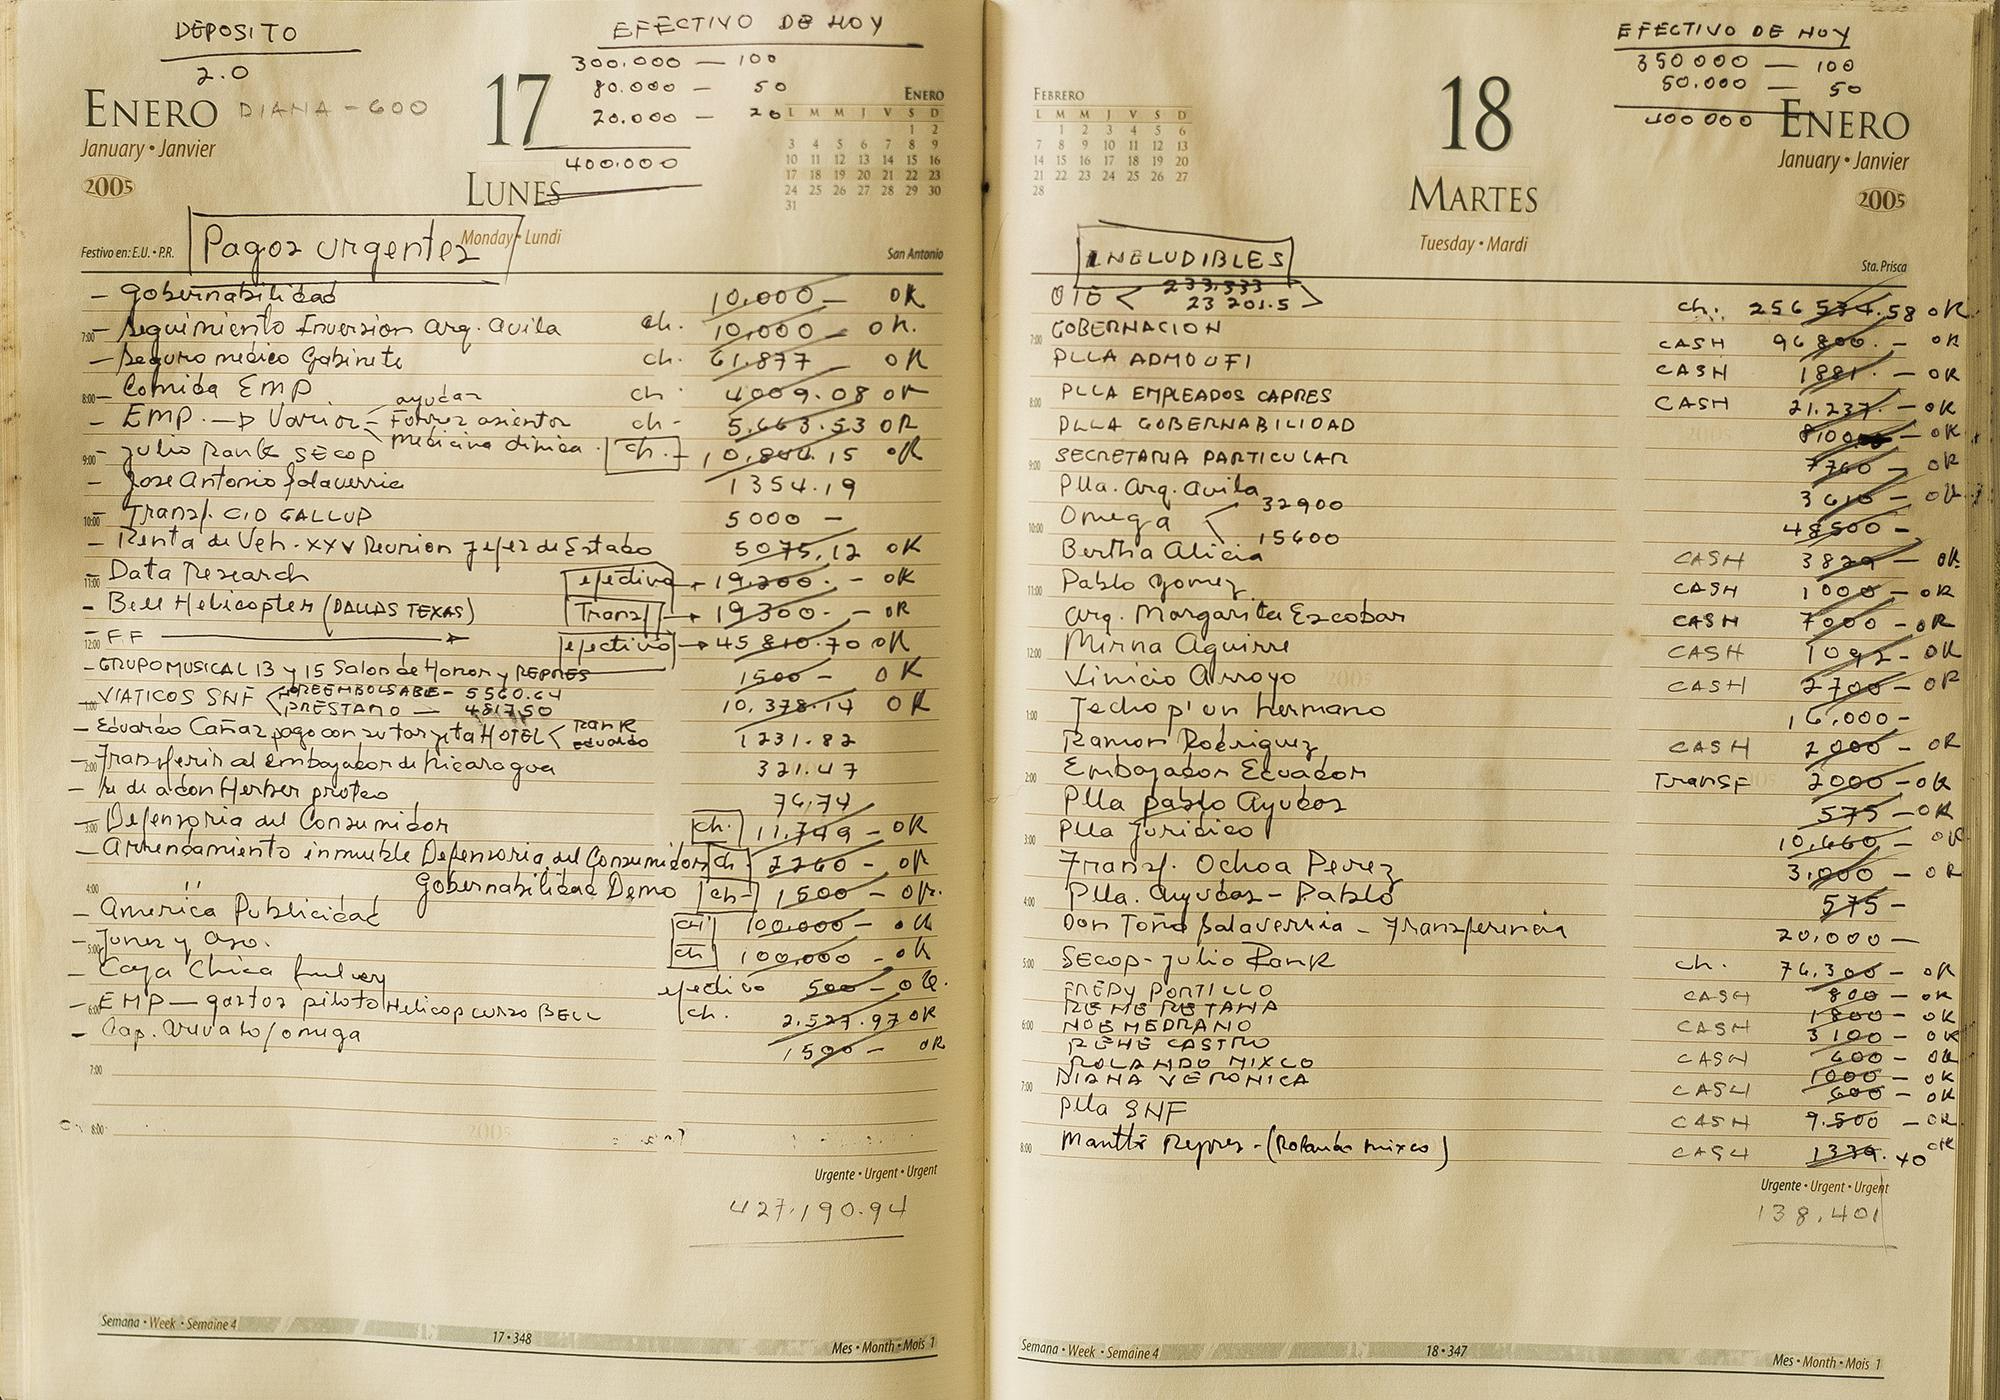 DEPOSITO
2.0
EFECTIVO DE HOY
300.000 — 100
80.000 — 50
20.000 — 20
400.000
ENERO
DIANA - 600
January • Janvier
2005
17
LUNES
Monday • Lundi
ENERO
L M M J V S D
1 2
3 4 5 6 7 8 9
10 11 12 13 14 15 16
17 18 19 20 21 22 23
24 25 26 27 28 29 30
31
Festivo en: E.U. • P.R.
Pagos urgentes
San Antonio
- Gobernabilidad 10,000 — OK
7:00 - Seguimiento Inversion Arq. Avila ch. 10,000 — OK.
- Seguro medico Gabinete ch. 61.877 OK
8:00 - Comida EMP ch. 4009.08 OK
- EMP. → Varios - ayudas Forros asientos medicina clinica ch - 5.663.53 OK
9:00 - Julio Rank SECOP ch. - 15 OK
- Jose Antonio Salaverria 1354.19
10:00 - Transf. CID GALLUP 5000 -
- Renta de Veh. XXV Reunion Jefes de Estado 5075.12 OK
11:00 - Data Research efectivo → 19.200. - OK
- Bell Helicopter (DALLAS TEXAS) Transf → 19.300. - OK
12:00 - F.F → efectivo → 45 810.70 OK
- GRUPO MUSICAL 13 y 15 Salon de Honor y REPRES 1500 - OK
1:00 - VIATICOS SNF < REEMBOLSABLE - 5560.64 PRESTAMO — 10,378.14 OK
- Eduardo Cañas pago con su tarjeta HOTEL < RANK EDUARDO 1231.82
2:00 - Transferir al embajador de Nicaragua 321.47
- a don Herber 76.74
3:00 - Defensoria del Consumidor ch. 11.749 - OK
- Arrendamiento inmueble Defensoria del Consumidor ch. 2260 - OK
4:00 " Gobernabilidad Demo ch - 1500 - OK.
- America Publicidad ch 100.000 - OK
5:00 - Funes y Aso. ch 100,000 - OK
- Caja Chica efectivo 500 - OK.
6:00 - EMP — gastos piloto Helicop curso BELL ch. 2.527.97 OK
- Cap. /omega 1500 - OK
7:00
8:00
2005
Urgente • Urgent • Urgent
427,190.94
Semana • Week • Semaine 4
17 • 348
Mes • Month • Mois 1
FEBRERO
L M M J V S D
1 2 3 4 5 6
7 8 9 10 11 12 13
14 15 16 17 18 19 20
21 22 23 24 25 26 27
28
18
MARTES
Tuesday • Mardi
EFECTIVO DE HOY
350 000 — 100
50.000 — 50
400 000
ENERO
January • Janvier
2005
INELUDIBLES
Sta. Prisca
OIE < 233.333 23 201.5 > ch. 256 534.58 OK
7:00 GOBERNACION CASH 96 800. - OK
PLLA ADMO UFI CASH 1881. - OK
8:00 PLLA EMPLEADOS CAPRES CASH 21.237. - OK
PLLA GOBERNABILIDAD - OK
9:00 SECRETARIA PARTICULAR 7760 - OK
Plla. Arq. Avila 3610 - OK
10:00 Omega < 32900 15600 48500 -
Bertha Alicia CASH 3829 - OK
11:00 Pablo Gomez CASH 1000 - OK
Arq. Margarita Escobar CASH 7000 - OK
12:00 Mirna Aguirre CASH 1092 - OK
Vinicio Arroyo CASH 2700 - OK
1:00 Techo p' un hermano 16,000 -
Ramon Rodriguez CASH 2000 - OK
2:00 Embajador Ecuador TRANSF 2000 - OK
Plla pablo Ayudas 575 - OK
3:00 Plla Juridico 10,660 - OK
Transf. Ochoa Perez 3,000 - OK
4:00 Plla. Ayudas - Pablo 575 -
Don Toño Salaverria - Transferencia 20,000 —
5:00 SECOP - Julio Rank ch. 76,300 - OK
FREDY PORTILLO CASH 800 - OK
RENE RETANA 1800 - OK
6:00 NOE MEDRANO CASH 3100 - OK
RENE CASTRO 600 - OK
ROLANDO MIXCO CASH 1000 - OK
7:00 DIANA VERONICA CASH 600 - OK
Plla SNF CASH 9.500 - OK
8:00 Mantto Repres - (Rolando mixco) CASH 1339. 40 OK
Urgente • Urgent • Urgent
138,401
Semana • Week • Semaine 4
18 • 347
Mes • Month • Mois 1